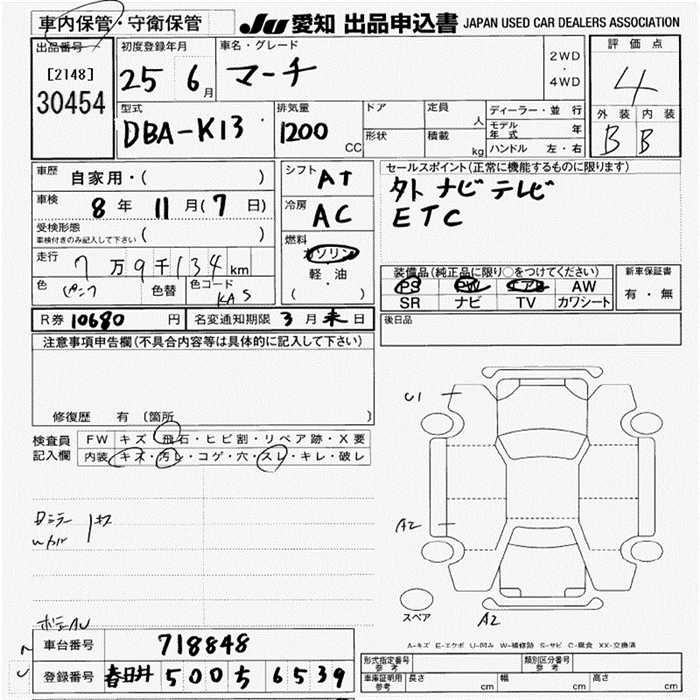 車内保管・守衛保管
JU 愛知 出品申込書 JAPAN USED CAR DEALERS ASSOCIATION
出品番号
[2148]
30454
初度登録年月
25 6月
車名・グレード
マーチ
2WD
・
4WD
評価点
4
外装 内装
B B
型式
DBA-K13
排気量
1200 CC
ドア
定員 人
形状
積載 kg
ディーラー・並行
モデル年式 年
ハンドル 左・右
車歴 自家用・( )
車検 8年 11月(7日)
受検形態
車検付きのみ記入して下さい ( )
走行 7万9千134km
色
色替
色コード
KAS
シフト AT
冷房 AC
燃料
ガソリン
軽・油
( )
セールスポイント(正常に機能するものに限ります)
タト ナビ テレビ
ETC
装備品(純正品に限り○をつけてください)
PS PW エアB AW
SR ナビ TV カワシート
新車保証書
有・無
R券 10680円
名変通知期限 3月末日
後日品
注意事項申告欄(不具合内容等は具体的に記入して下さい)
修復歴 有(箇所 )
検査員記入欄
FW キズ・飛石・ヒビ割・リペア跡・X要
内装 キズ・汚レ・コゲ・穴・スレ・キレ・破レ
U1
A2
スペア
A2
A-キズ E-エクボ U-凹み W-補修跡 S-サビ C-腐食 XX-交換済
車台番号 718848
登録番号 春日井 500 ち 6539
形式指定番号 参考
類別区分番号 参考
車庫証明用 参考
長さ cm
幅 cm
高さ cm